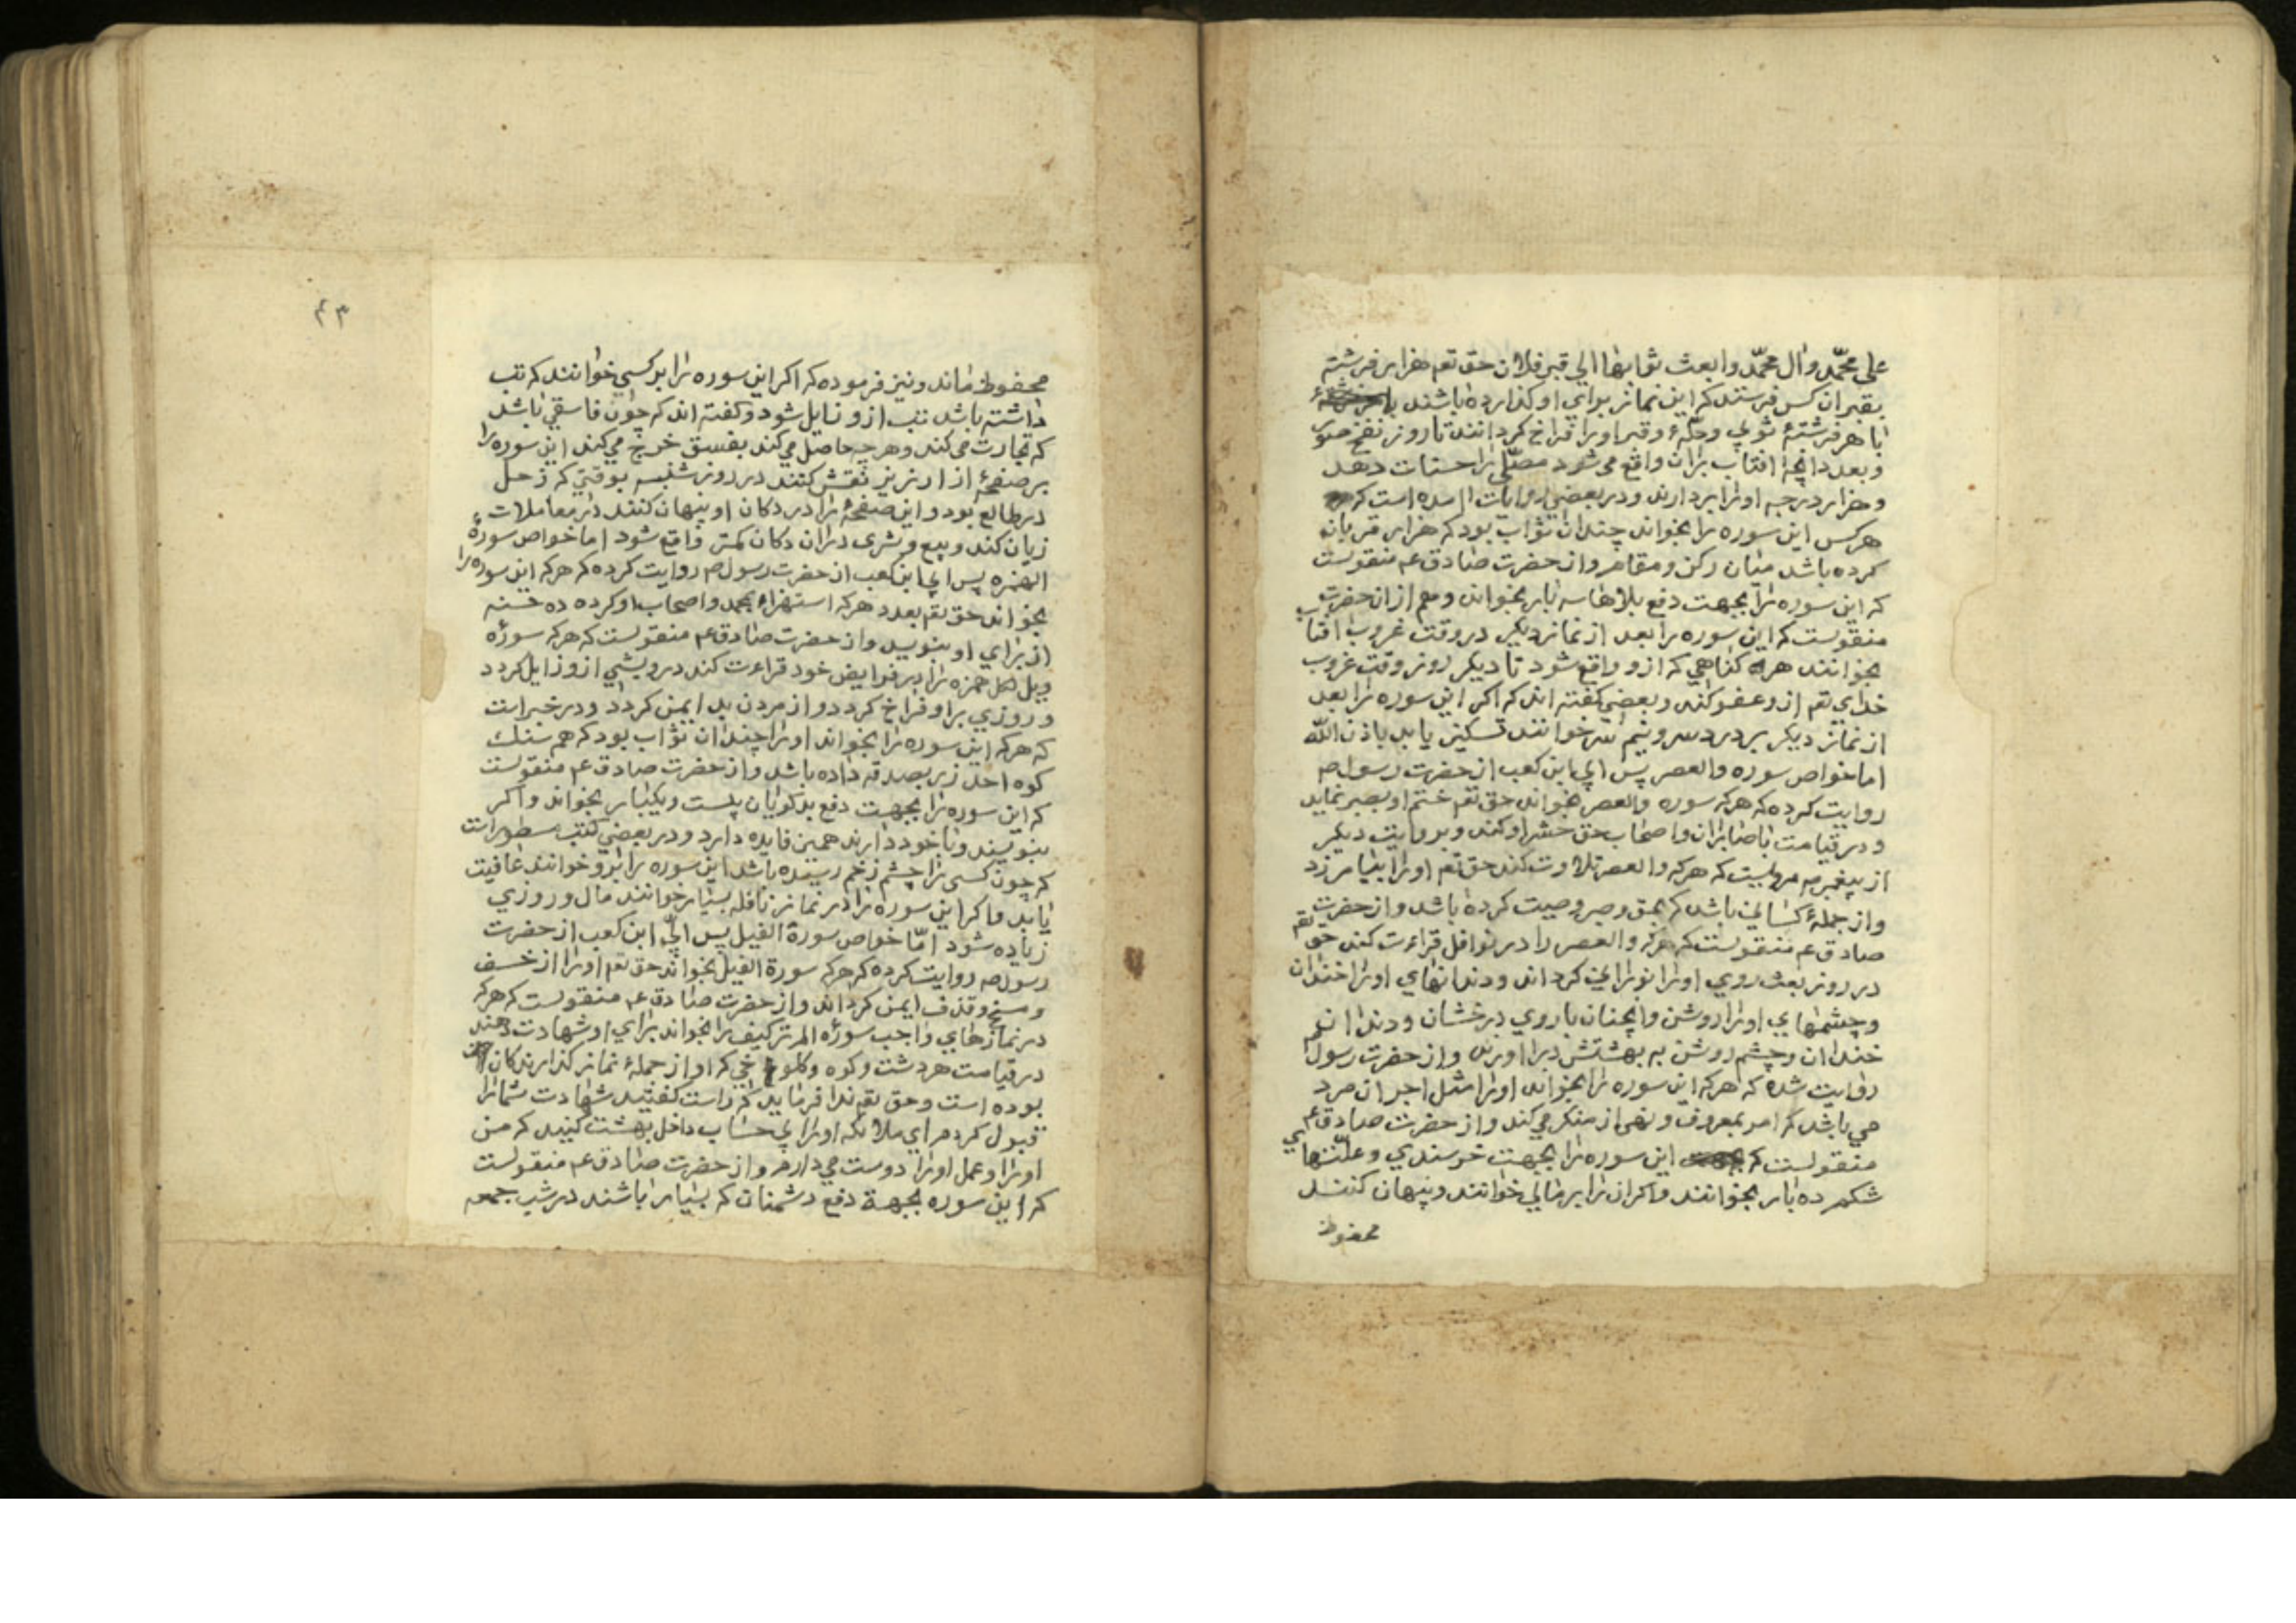 علی محمّد وال محمّد وابعث ثوابها الی قبر فلان حق تعم هزار فرشته
بقبر ان کس فرستد که این نماز برای او کذارده باشند
با هر فرشتهٔ ثوبی وحلّهٔ وقبر اورا فراخ کردانند تا روز نفخ صور
وبعدد انچه افتاب بران واقع می شود مصلّی را حسنات دهد
وهزار درجه اورا بردارند ودر بعضی روایات امده است که
هرکس این سوره را بخواند چندان ثواب بود که هزار قربان
کرده باشد میان رکن ومقام واز حضرت صادق عم منقولست
که این سوره را بجهت دفع بلاها سه بار بخواند وهم از ان حضرت
منقولست که این سوره را بعد از نماز دیکر در وقت غروب افتاب
بخوانند هر کناهی که ازو واقع شود تا دیکر روز وقت غروب
خدای تعم ازو عفو کند وبعضی کفته اند که اکر این سوره را بعد
از نماز دیکر بر درد سر ونیم سر خوانند تسکین یابد باذن الله
اما خواص سوره والعصر پس ابی ابن کعب از حضرت رسول صم
روایت کرده که هرکه سوره والعصر بخواند حق تعم ختم او بصبر نماید
ودر قیامت با صابران واصحاب حق حشر او کند وبروایت دیکر
از پیغمبر صم مرویست که هرکه والعصر تلاوت کند حق تعم اورا بیامرزد
واز جملهٔ کسانی باشد که بحق وصبر وصیت کرده باشد واز حضرت
صادق عم منقولست که هرکه والعصر را در نوافل قراءت کند حق تعم
در روز بعث روی اورا نورانی کرداند ودندانهای اورا خندان
وچشمهای اورا روشن وانچنان با روی درخشان ودندان
خندان وچشم روشن به بهشتش در اورند واز حضرت رسول صم
روایت شده که هرکه این سوره را بخواند اورا مثل اجر ان مرد
می باشد که امر بمعروف ونهی از منکر می کند واز حضرت صادق عم
منقولست که این سوره را بجهت خرسندی وعلّتهای
شکم ده بار بخوانند واکر ان را بر مالی خوانند وپنهان کنند
محفوظ
۴۳
محفوظ ماند ونیز فرموده که اکر این سوره را بر کسی خوانند که تب
داشته باشد تب ازو زایل شود وکفته اند که چون فاسقی باشد
که تجارت می کند وهرچه حاصل می کند بفسق خرج می کند این سوره را
بر صفحهٔ از ارزیز نقش کنند در روز شنبه بوقتی که زحل
در طالع بود واین صفحه را در دکان او پنهان کنند در معاملات
زیان کند وبیع وشری دران دکان کمتر واقع شود اما خواص سورهٔ
الهمزه پس ابی ابن کعب از حضرت رسول صم روایت کرده که هرکه این سوره را
بخواند حق تعم بعدد هرکه استهزاء بمحمد واصحاب او کرده ده حسنه
از برای او بنویسد واز حضرت صادق عم منقولست که هرکه سورهٔ
ویل لکل همزه را در فرایض خود قراءت کند درویشی ازو زایل کردد
وروزی برا وفراخ کردد واز مردن بد ایمن کردد ودر خبر است
که هرکه این سوره را بخواند اورا چندان ثواب بود که هم سنک
کوه احد زر بصدقه داده باشد واز حضرت صادق عم منقولست
که این سوره را بجهت دفع بدکویان بیست ویکبار بخواند واکر
بنویسند وبا خود دارند همین فایده دارد ودر بعضی کتب مسطور است
که چون کسی را چشم زخم رسیده باشد این سوره را برو خوانند عافیت
یابد واکر این سوره را در نماز نافله بسیار خوانند مال وروزی
زیاده شود امّا خواص سورة الفیل پس ابیّ ابن کعب از حضرت
رسول صم روایت کرده که هرکه سورة الفیل بخواند حق تعم اورا از خسف
ومسخ وقذف ایمن کرداند واز حضرت صادق عم منقولست که هرکه
در نمازهای واجب سورهٔ الم تر کیف را بخواند برای او شهادت دهند
در قیامت هر دشت وکوه وکلوخی که او از جملهٔ نماز کذارندکان
بوده است وحق تعم ندا فرماید که راست کفتید شهادت شما را
قبول کردم ای ملائکه اورا بی حساب داخل بهشت کنید که من
اورا وعمل اورا دوست می دارم واز حضرت صادق عم منقولست
که این سوره بجهة دفع دشمنان که بسیار باشند در شب جمعه